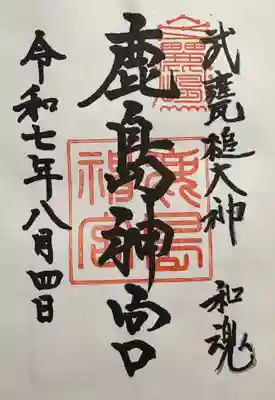 武甕槌大神 和魂
鹿島神宮
令和七年八月四日
鹿島
神宮